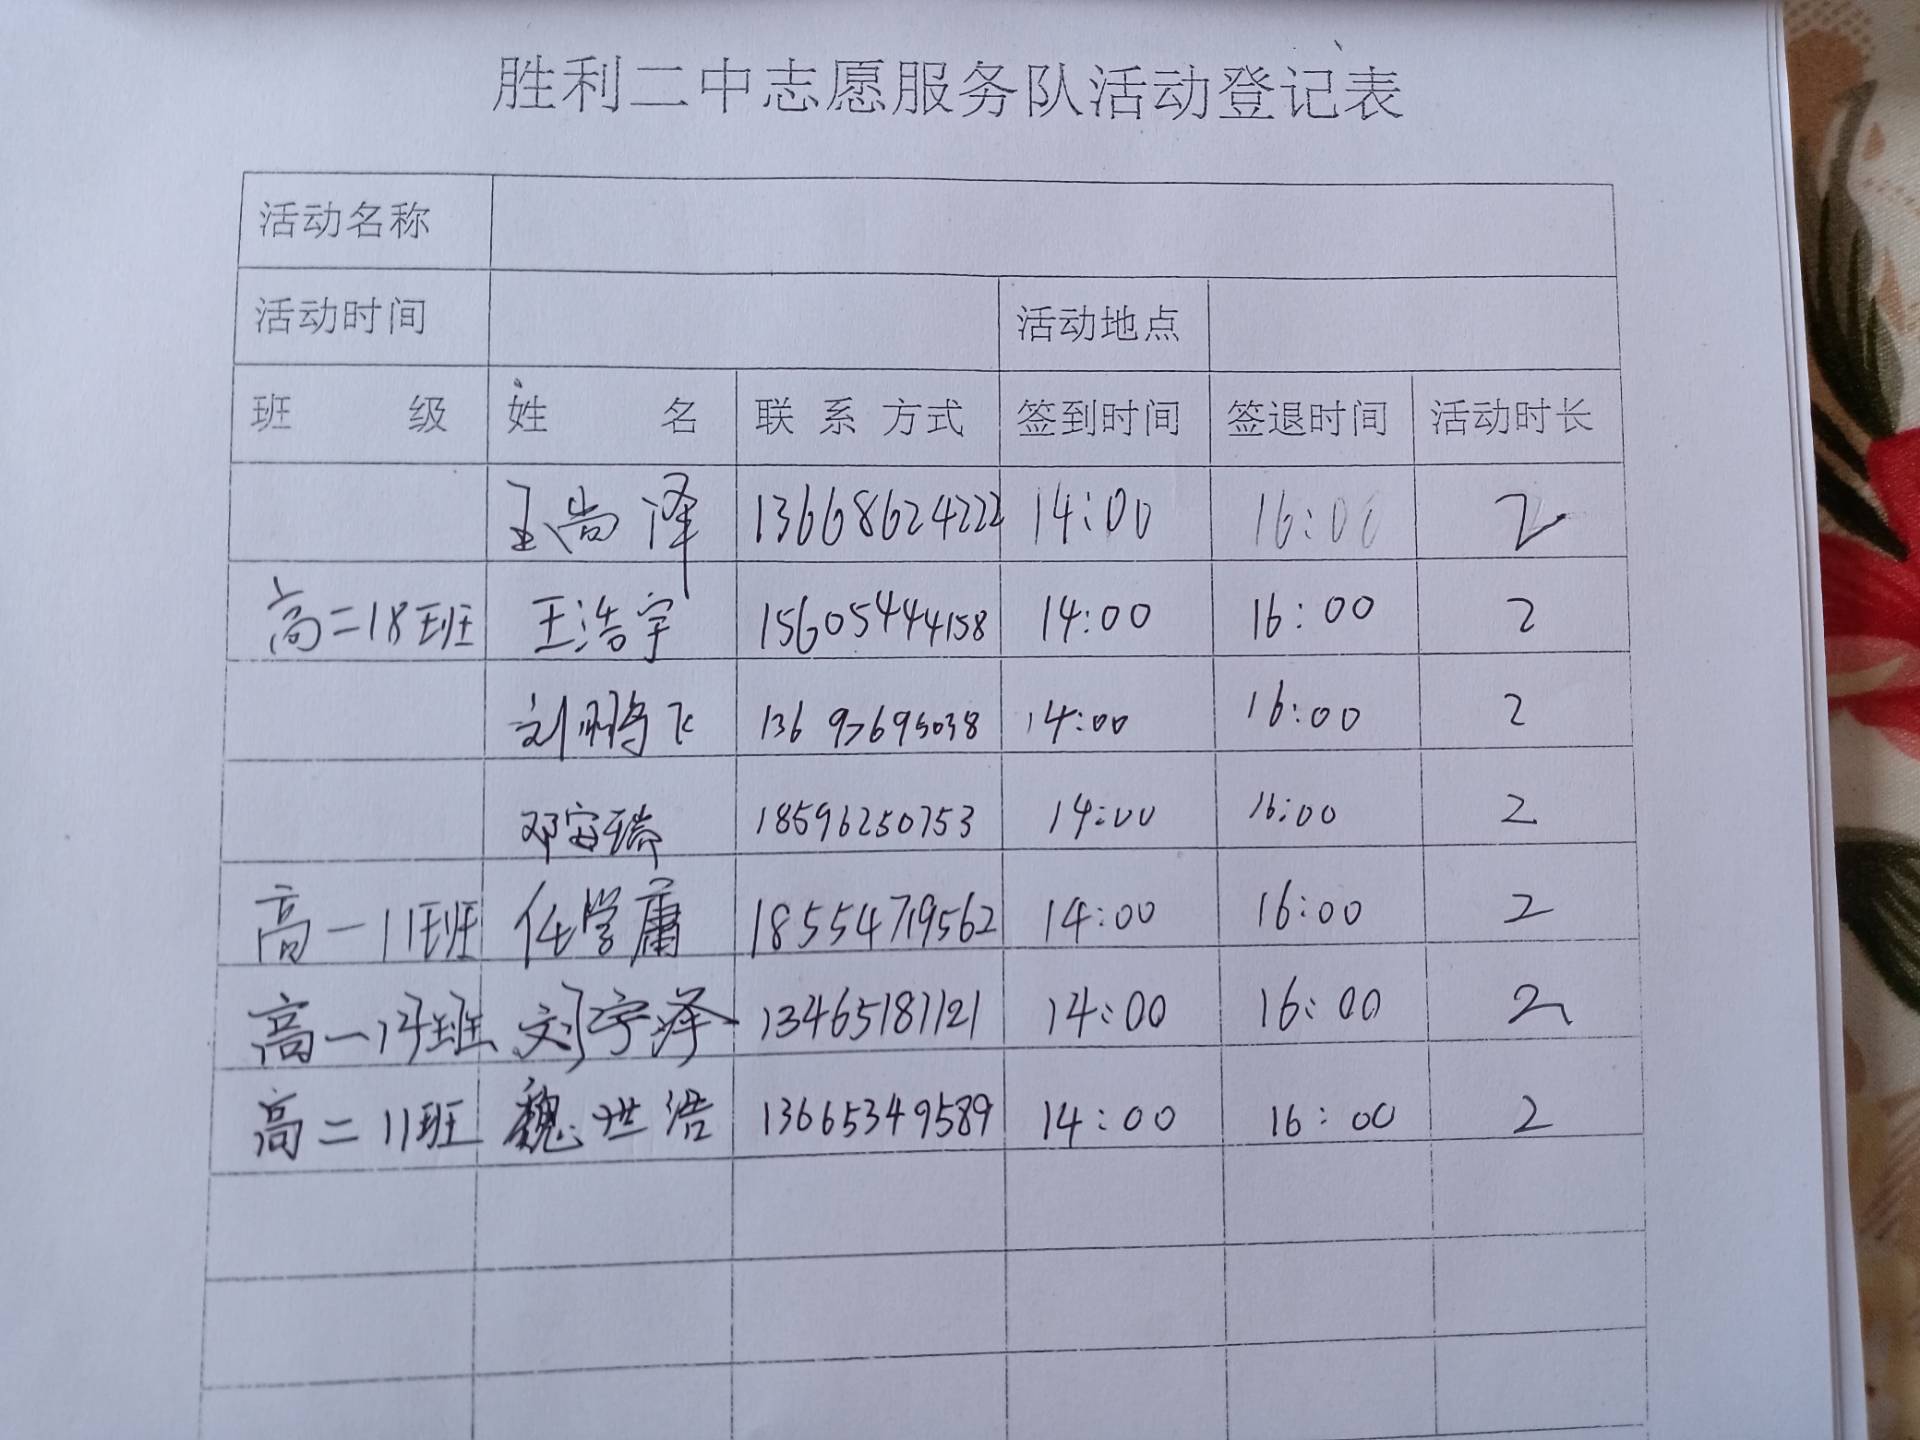 胜利二中志愿服务队活动登记表
活动名称
活动时间 活动地点
班 级 姓 名 联系方式 签到时间 签退时间 活动时长
王尚泽 13668624222 14:00 16:00 2
高二18班 王浩宇 15605444158 14:00 16:00 2
刘鹏飞 13697695038 14:00 16:00 2
邓安瑞 18596250753 14:00 16:00 2
高一11班 任学庸 18554719562 14:00 16:00 2
高一 班 刘宇泽 13465181121 14:00 16:00 2
高二11班 魏世浩 13665349589 14:00 16:00 2